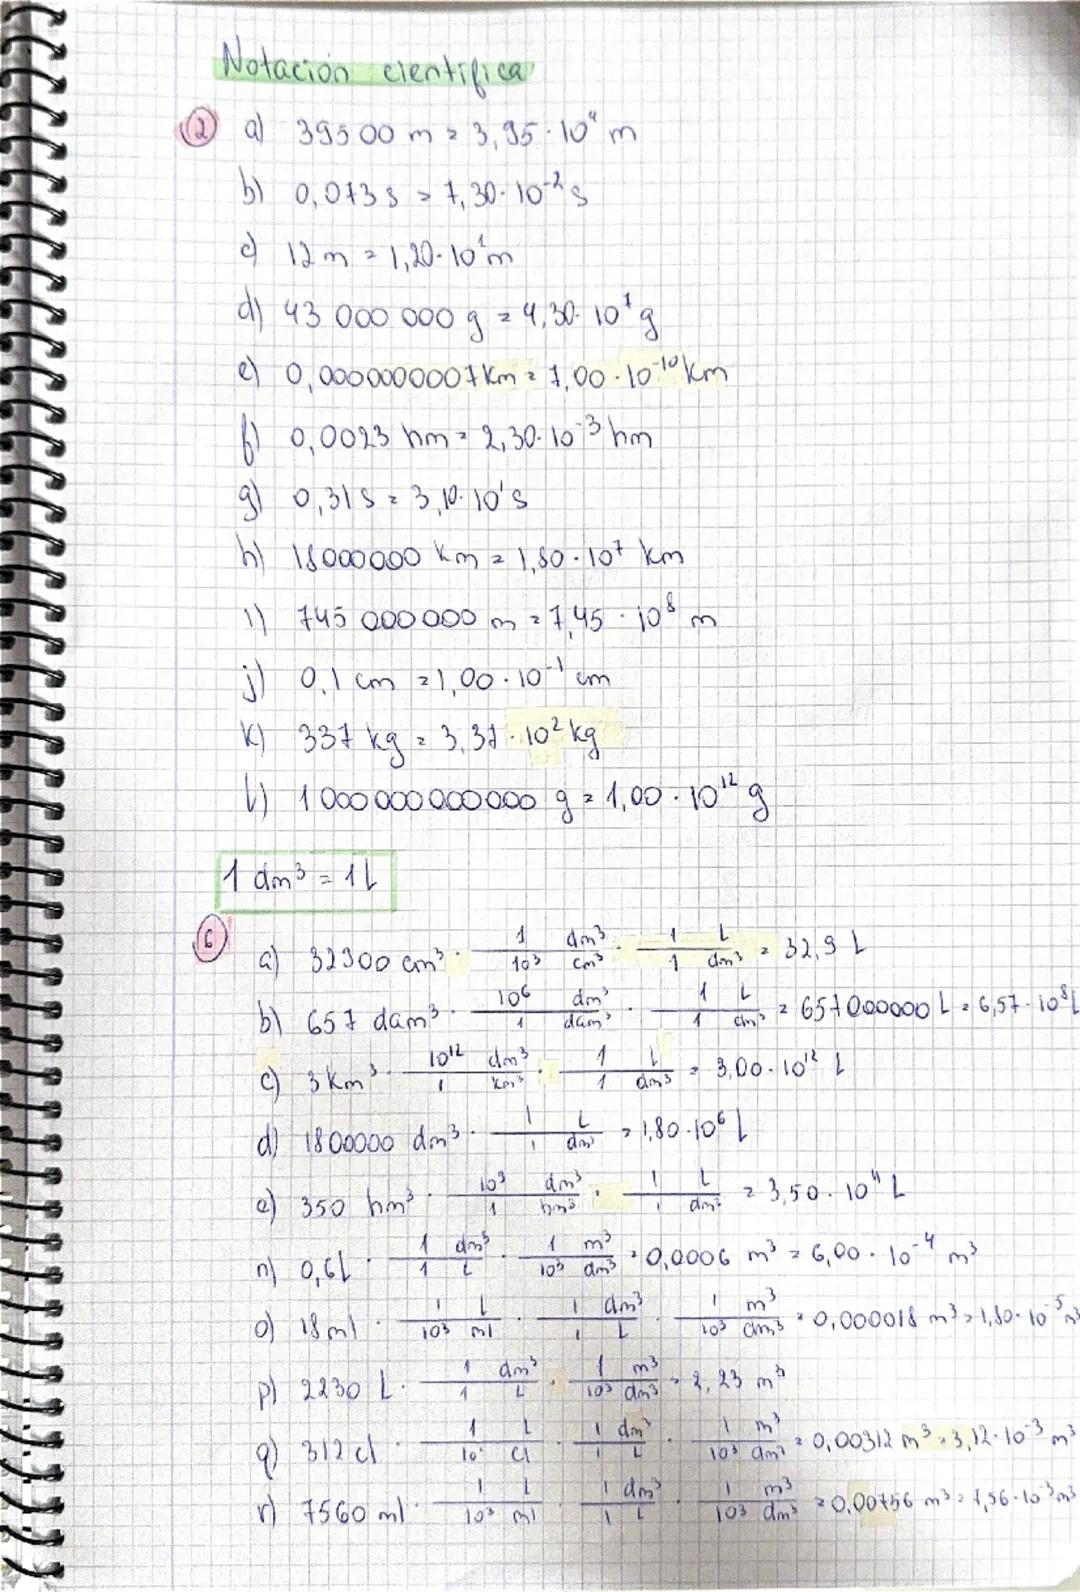 Notación científica
2 a) 39500 m = 3,95·10⁴ m
b) 0,073 s = 7,30·10⁻² s
c) 12 m = 1,20·10¹ m
d) 43 000 000 g = 4,30·10⁷ g
e) 0,0000000007 km = 7,00·10⁻¹⁰ km
f) 0,0023 hm = 2,30·10⁻³ hm
g) 0,31 s = 3,10·10¹ s
h) 18000000 km = 1,80·10⁷ km
i) 745 000 000 m = 7,45·10⁸ m
j) 0,1 cm = 1,00·10⁻¹ cm
k) 337 kg = 3,37·10² kg
l) 1 000 000 000 000 g = 1,00·10¹² g
1 dm³ = 1 L
6 a) 32300 cm³ · 1/10³ dm³/cm³ · 1/1 L/dm³ = 32,3 L
b) 657 dam³ · 10⁶/1 dm³/dam³ · 1/1 L/dm³ = 657000000 L = 6,57·10⁸ L
c) 3 km³ · 10¹²/1 dm³/km³ · 1/1 L/dm³ = 3,00·10¹² L
d) 1800000 dm³ · 1/1 L/dm³ = 1,80·10⁶ L
e) 350 hm³ · 10⁹/1 dm³/hm³ · 1/1 L/dm³ = 3,50·10¹¹ L
n) 0,6 L · 1/1 dm³/L · 1/10³ m³/dm³ = 0,0006 m³ = 6,00·10⁻⁴ m³
o) 18 ml · 1/10³ L/ml · 1/1 dm³/L · 1/10³ m³/dm³ = 0,000018 m³ = 1,80·10⁻⁵ m³
p) 2230 L · 1/1 dm³/L · 1/10³ m³/dm³ = 2,23 m³
q) 312 cl · 1/10² L/cl · 1/1 dm³/L · 1/10³ m³/dm³ = 0,00312 m³ = 3,12·10⁻³ m³
r) 7560 ml · 1/10³ L/ml · 1/1 dm³/L · 1/10³ m³/dm³ = 0,00756 m³ = 7,56·10⁻³ m³